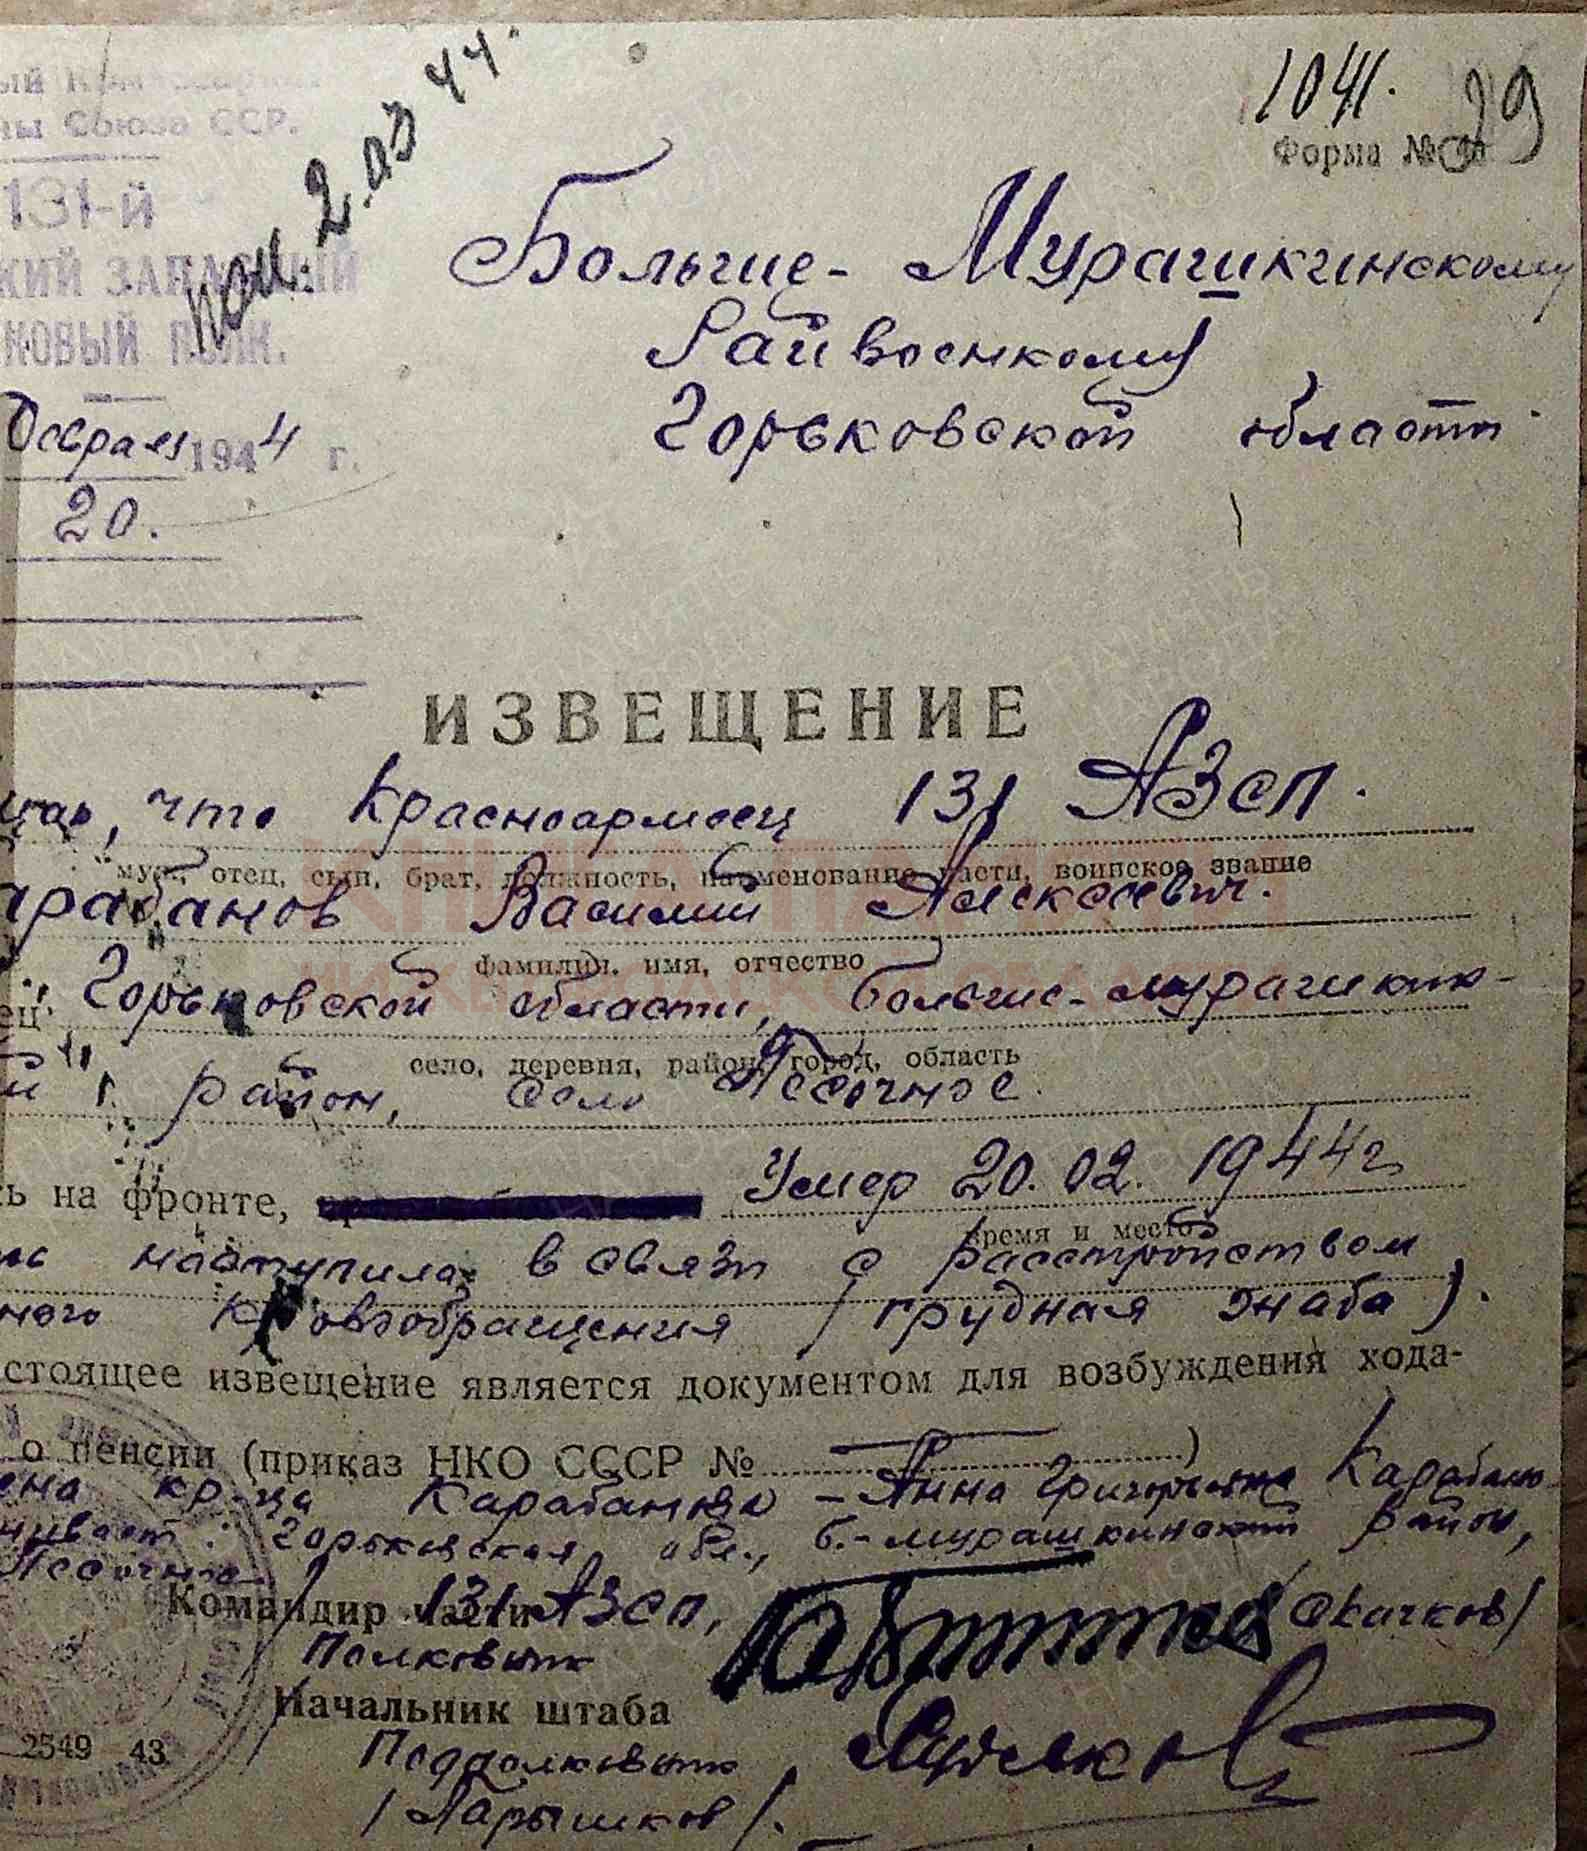 1041. 39
ны Союза ССР.
Форма №
131-й
пол. 2.03 44.
КИЙ ЗАПАСНЫЙ
КОВЫЙ ПОЛК.
Больше-Мурашкинскому
Райвоенкому
Горьковской области
Февраля 1944 г.
20.
ИЗВЕЩЕНИЕ
что Красноармеец 131 АЗСП.
муж, отец, сын, брат, должность, наименование части, воинское звание
арабанов Василий Алексеевич.
фамилия, имя, отчество
ец: Горьковской области, больше-мурашкин-
село, деревня, район, город, область
й район, село Песочное.
ь на фронте, Умер 20.02.1944 г
время и место
ть наступила в связи с расстройством
ного кровообращения (грудная жаба).
стоящее извещение является документом для возбуждения хода-
о пенсии (приказ НКО СССР № )
ена кр-ца Карабанова – Анна Григорьевна Карабано
живает: Горьковская обл., Б.-мурашкинский район,
Песочное
Командир части 131 АЗСП,
Полковник (Скачков)
Начальник штаба
Подполковник
(Ларышков).
2549 43